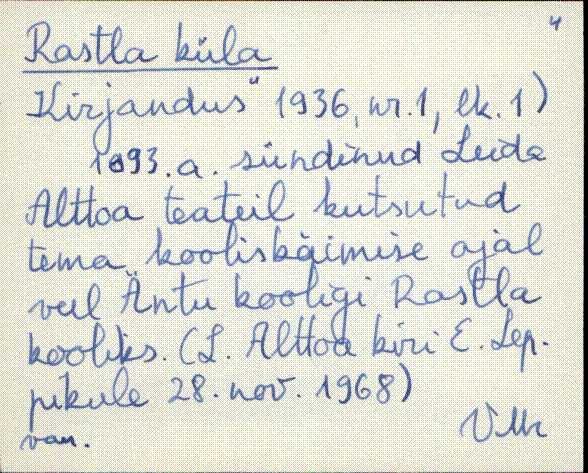 4
Rastla küla
Kirjandus" 1936, nr. 1, lk. 1)
1893.a. sündinud Leida
Alttoa teateil kutsutud
tema kooliskäimise ajal
veel Äntu kooligi Rastla
kooliks. (L. Alttoa kiri E. Lep-
pikule 28. nov. 1968)
van.